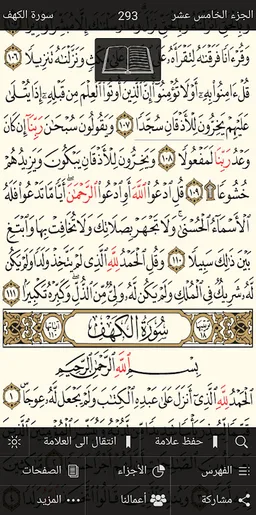 سورة الكهف 293 الجزء الخامس عشر
وَقُرْءَانًا فَرَقْنَٰهُ لِتَقْرَأَهُ عَلَى مُكْثٍ وَنَزَّلْنَٰهُ تَنزِيلًا ١٠٦
قُلْ ءَامِنُوا۟ بِهِۦٓ أَوْ لَا تُؤْمِنُوٓا۟ إِنَّ ٱلَّذِينَ أُوتُوا۟ ٱلْعِلْمَ مِن قَبْلِهِۦٓ إِذَا يُتْلَىٰ
عَلَيْهِمْ يَخِرُّونَ لِلْأَذْقَانِ سُجَّدًا ١٠٧ وَيَقُولُونَ سُبْحَٰنَ رَبِّنَآ إِن كَانَ
وَعْدُ رَبِّنَا لَمَفْعُولًا ١٠٨ وَيَخِرُّونَ لِلْأَذْقَانِ يَبْكُونَ وَيَزِيدُهُمْ
خُشُوعًا ۩ ١٠٩ قُلِ ٱدْعُوا۟ ٱللَّهَ أَوِ ٱدْعُوا۟ ٱلرَّحْمَٰنَ ۖ أَيًّا مَّا تَدْعُوا۟ فَلَهُ
ٱلْأَسْمَآءُ ٱلْحُسْنَىٰ ۚ وَلَا تَجْهَرْ بِصَلَاتِكَ وَلَا تُخَافِتْ بِهَا وَٱبْتَغِ
بَيْنَ ذَٰلِكَ سَبِيلًا ١١٠ وَقُلِ ٱلْحَمْدُ لِلَّهِ ٱلَّذِى لَمْ يَتَّخِذْ وَلَدًا وَلَمْ يَكُن
لَّهُۥ شَرِيكٌ فِى ٱلْمُلْكِ وَلَمْ يَكُن لَّهُۥ وَلِىٌّ مِّنَ ٱلذُّلِّ ۖ وَكَبِّرْهُ تَكْبِيرًۢا ١١١
سُورَةُ الكَهْفِ
بِسْمِ ٱللَّهِ ٱلرَّحْمَٰنِ ٱلرَّحِيمِ
ٱلْحَمْدُ لِلَّهِ ٱلَّذِىٓ أَنزَلَ عَلَىٰ عَبْدِهِ ٱلْكِتَٰبَ وَلَمْ يَجْعَل لَّهُۥ عِوَجَا ۜ ١
حفظ علامة انتقال الى العلامة
الفهرس الأجزاء الصفحات
مشاركة أعمالنا المزيد